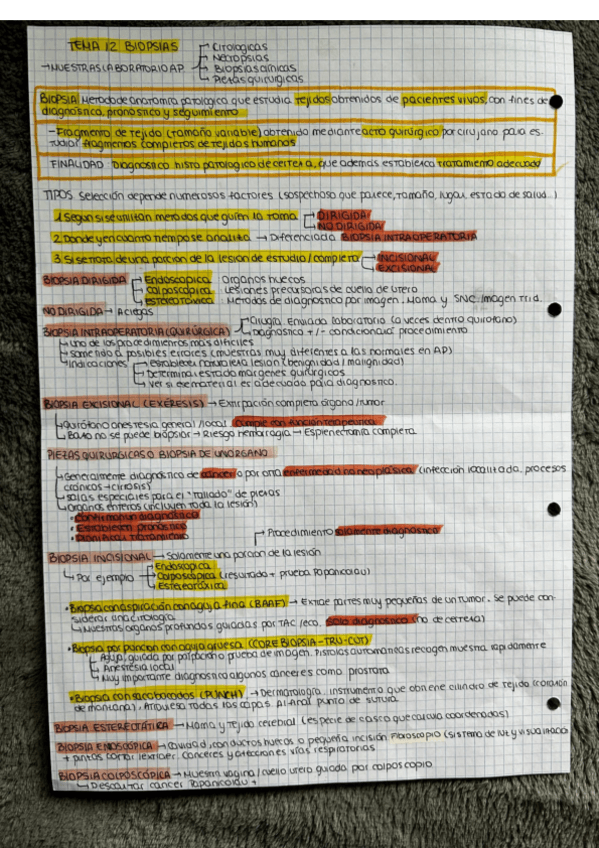 TEMA 12 BIOPSIAS
Citologicas
Necropsias
→ NUESTRAS LABORATORIO AP
Biopsias clinicas
Piezas quirurgicas
BIOPSIA Metodo de anatomia patologica que estudia tejidos obtenidos de pacientes vivos, con fines de
diagnostico, pronostico y seguimiento
- Fragmento de tejido (tamaño variable) obtenido mediante acto quirurgico por cirujano para es-
tudiar fragmentos completos de tejidos humanos
FINALIDAD Diagnostico histopatologico de certera, que ademas establezca tratamiento adecuado
TIPOS Selección depende numerosos factores (sospechoso que parece, tamaño, lugar, estado de salud..)
1. Segun si se utilitan metodos que guien la toma
DIRIGIDA
NO DIRIGIDA
2. Donde y en cuanto tiempo se analita → Diferenciada BIOPSIA INTRAOPERATORIA
3. Si se trata de una porcion de la lesion de estudio/completa
INCISIONAL
EXCISIONAL
BIOPSIA DIRIGIDA
Endoscopica: Organos huecos
Colposcopica: Lesiones precursoras de cuello de utero
Estereotaxica: Metodos de diagnostico por imagen. Mama y SNC. Imagen Trid.
NO DIRIGIDA → A ciegas
BIOPSIA INTRAOPERATORIA (QUIRÚRGICA)
Cirugia. Enviada laboratorio (a veces dentro quirofano)
Diagnostico +/- condicionara procedimiento
Uno de los procedimientos mas dificiles
Sometido a posibles errores (muestras muy diferentes a las normales en AP)
Indicaciones
Establecer naturaleza lesion (benignidad/malignidad)
Determinar estado margenes quirurgicos
Ver si ese material es adecuado para diagnostico.
BIOPSIA EXCISIONAL (EXÉRESIS) → Extirpación completa órgano/tumor
Quirofano anestesia general/local. Cumple con funcion terapeutica
Bazo no se puede biopsiar → Riesgo hemorragia → Esplenectomia completa
PIEZAS QUIRURGICAS O BIOPSIA DE UN ORGANO
Generalmente diagnostico de cancer o por otra enfermedad no neoplasica (infección localitada, procesos
crónicos → cirrosis)
Salas especiales para el "tallado" de piezas
Organos enteros (incluyen toda la lesión)
• Confirman un diagnostico
• Establecen pronostico
• Planifican tratamiento
Procedimiento solamente diagnostico
BIOPSIA INCISIONAL → Solamente una porcion de la lesión
Por ejemplo
Endoscopica
Colposcopica (resultado + prueba Papanicolau)
Estereotaxica
• Biopsia con aspiración con aguja fina (BAAF) → Extrae partes muy pequeñas de un tumor. Se puede con-
siderar una citologia.
Muestras organos profundos guiadas por TAC/eco. Solo diagnostico (no de certera)
• Biopsia por puncion con aguja gruesa (CORE BIOPSIA-TRU-CUT)
Aguja guiada por palpación o prueba de imagen. Pistolas automaticas recogen muestra rapidamente
Anestesia local
Muy importante diagnostico algunos cánceres como prostata
• Biopsia con sacabocados (PUNCH) → Dermatologia. Instrumento que obtiene cilindro de tejido (corazón
de manzana). Atraviesa todas las capas. Al final punto de sutura.
BIOPSIA ESTEREOTÁTICA → Mama y Tejido cerebral (especie de casco que calcula coordenadas)
BIOPSIA ENDOSCÓPICA → Cavidad, conductos huecos o pequeña incisión. Fibroscopio (sistema de luz y visualización
+ pintas cortar/extraer. Canceres y afecciones vías respiratorias
BIOPSIA COLPOSCÓPICA → Muestra vagina/cuello utero guiada por colposcopio
Descartar cancer Papanicolau +